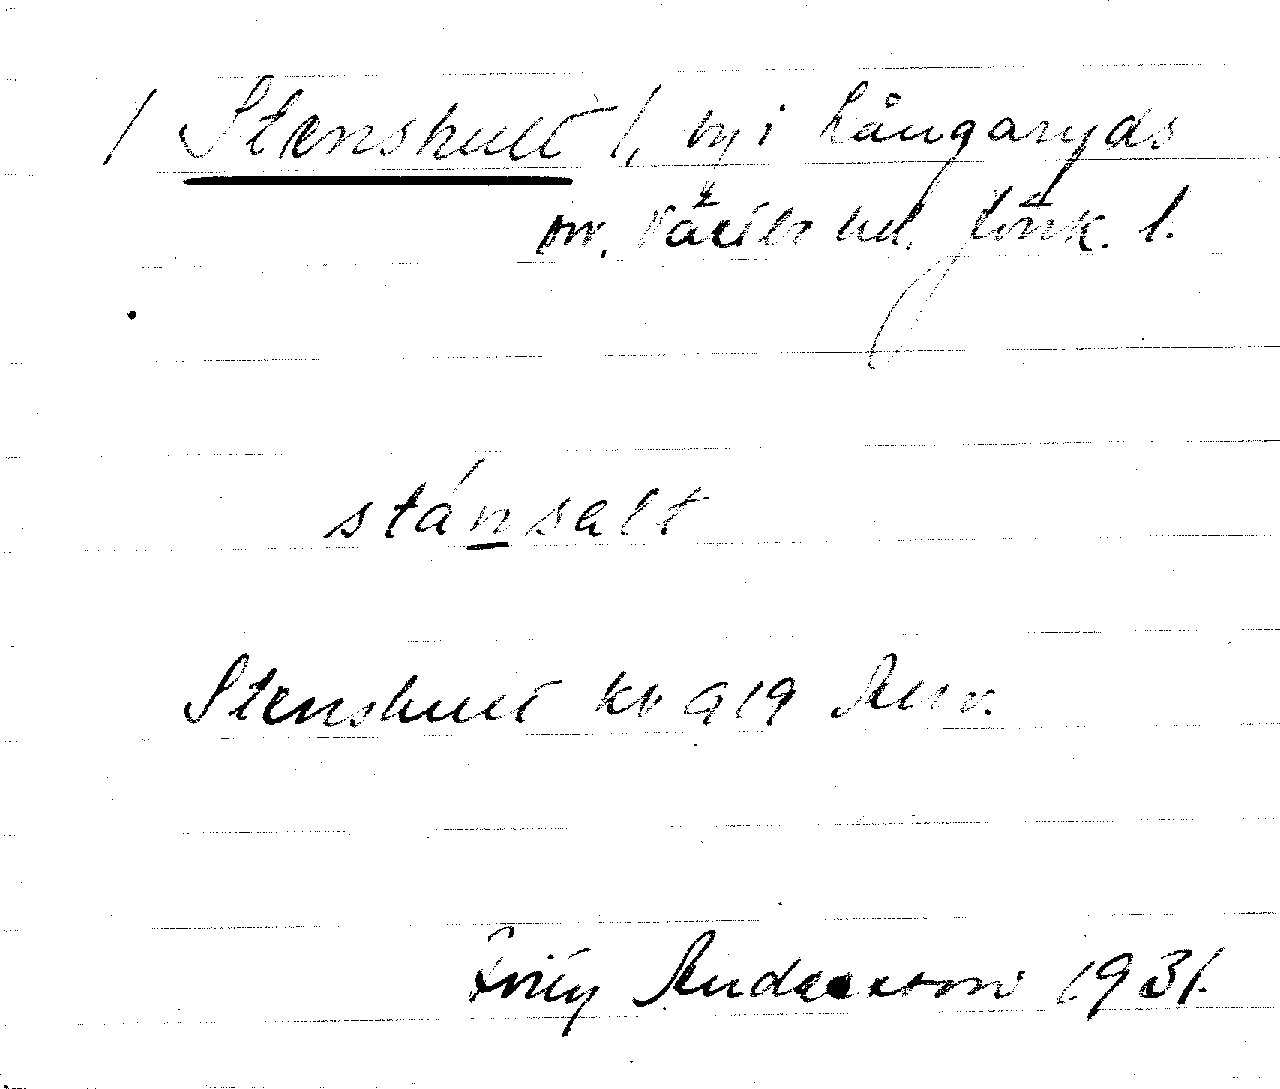 / Stenshult /, by i Långaryds
sn. Västbo hd. Jönk. l.
stánsalt
Stenshult kb 919
Andersson 1931.